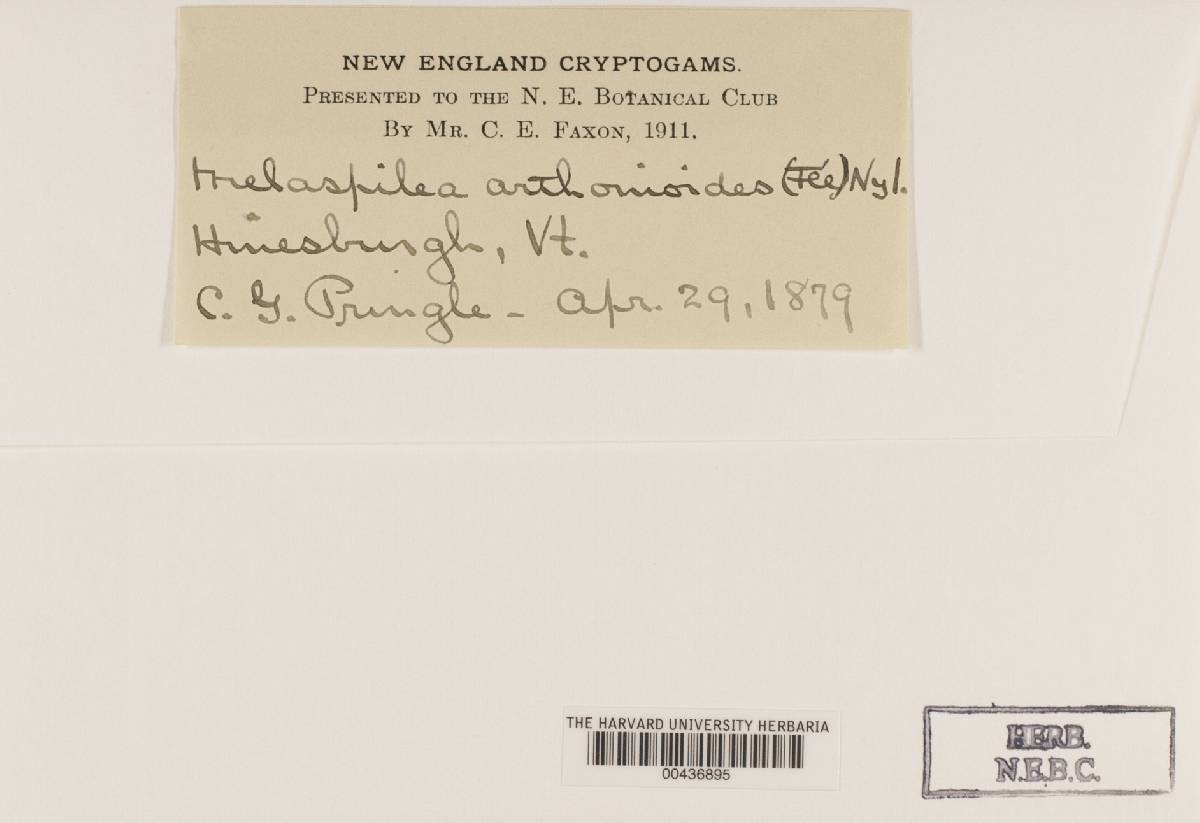 NEW ENGLAND CRYPTOGAMS.
PRESENTED TO THE N. E. BOTANICAL CLUB
BY MR. C. E. FAXON, 1911.
Melaspilea arthonioides (Fée) Nyl.
Hinesburgh, Vt.
C. G. Pringle - Apr. 29, 1879
THE HARVARD UNIVERSITY HERBARIA
00436895
HERB.
N.E.B.C.